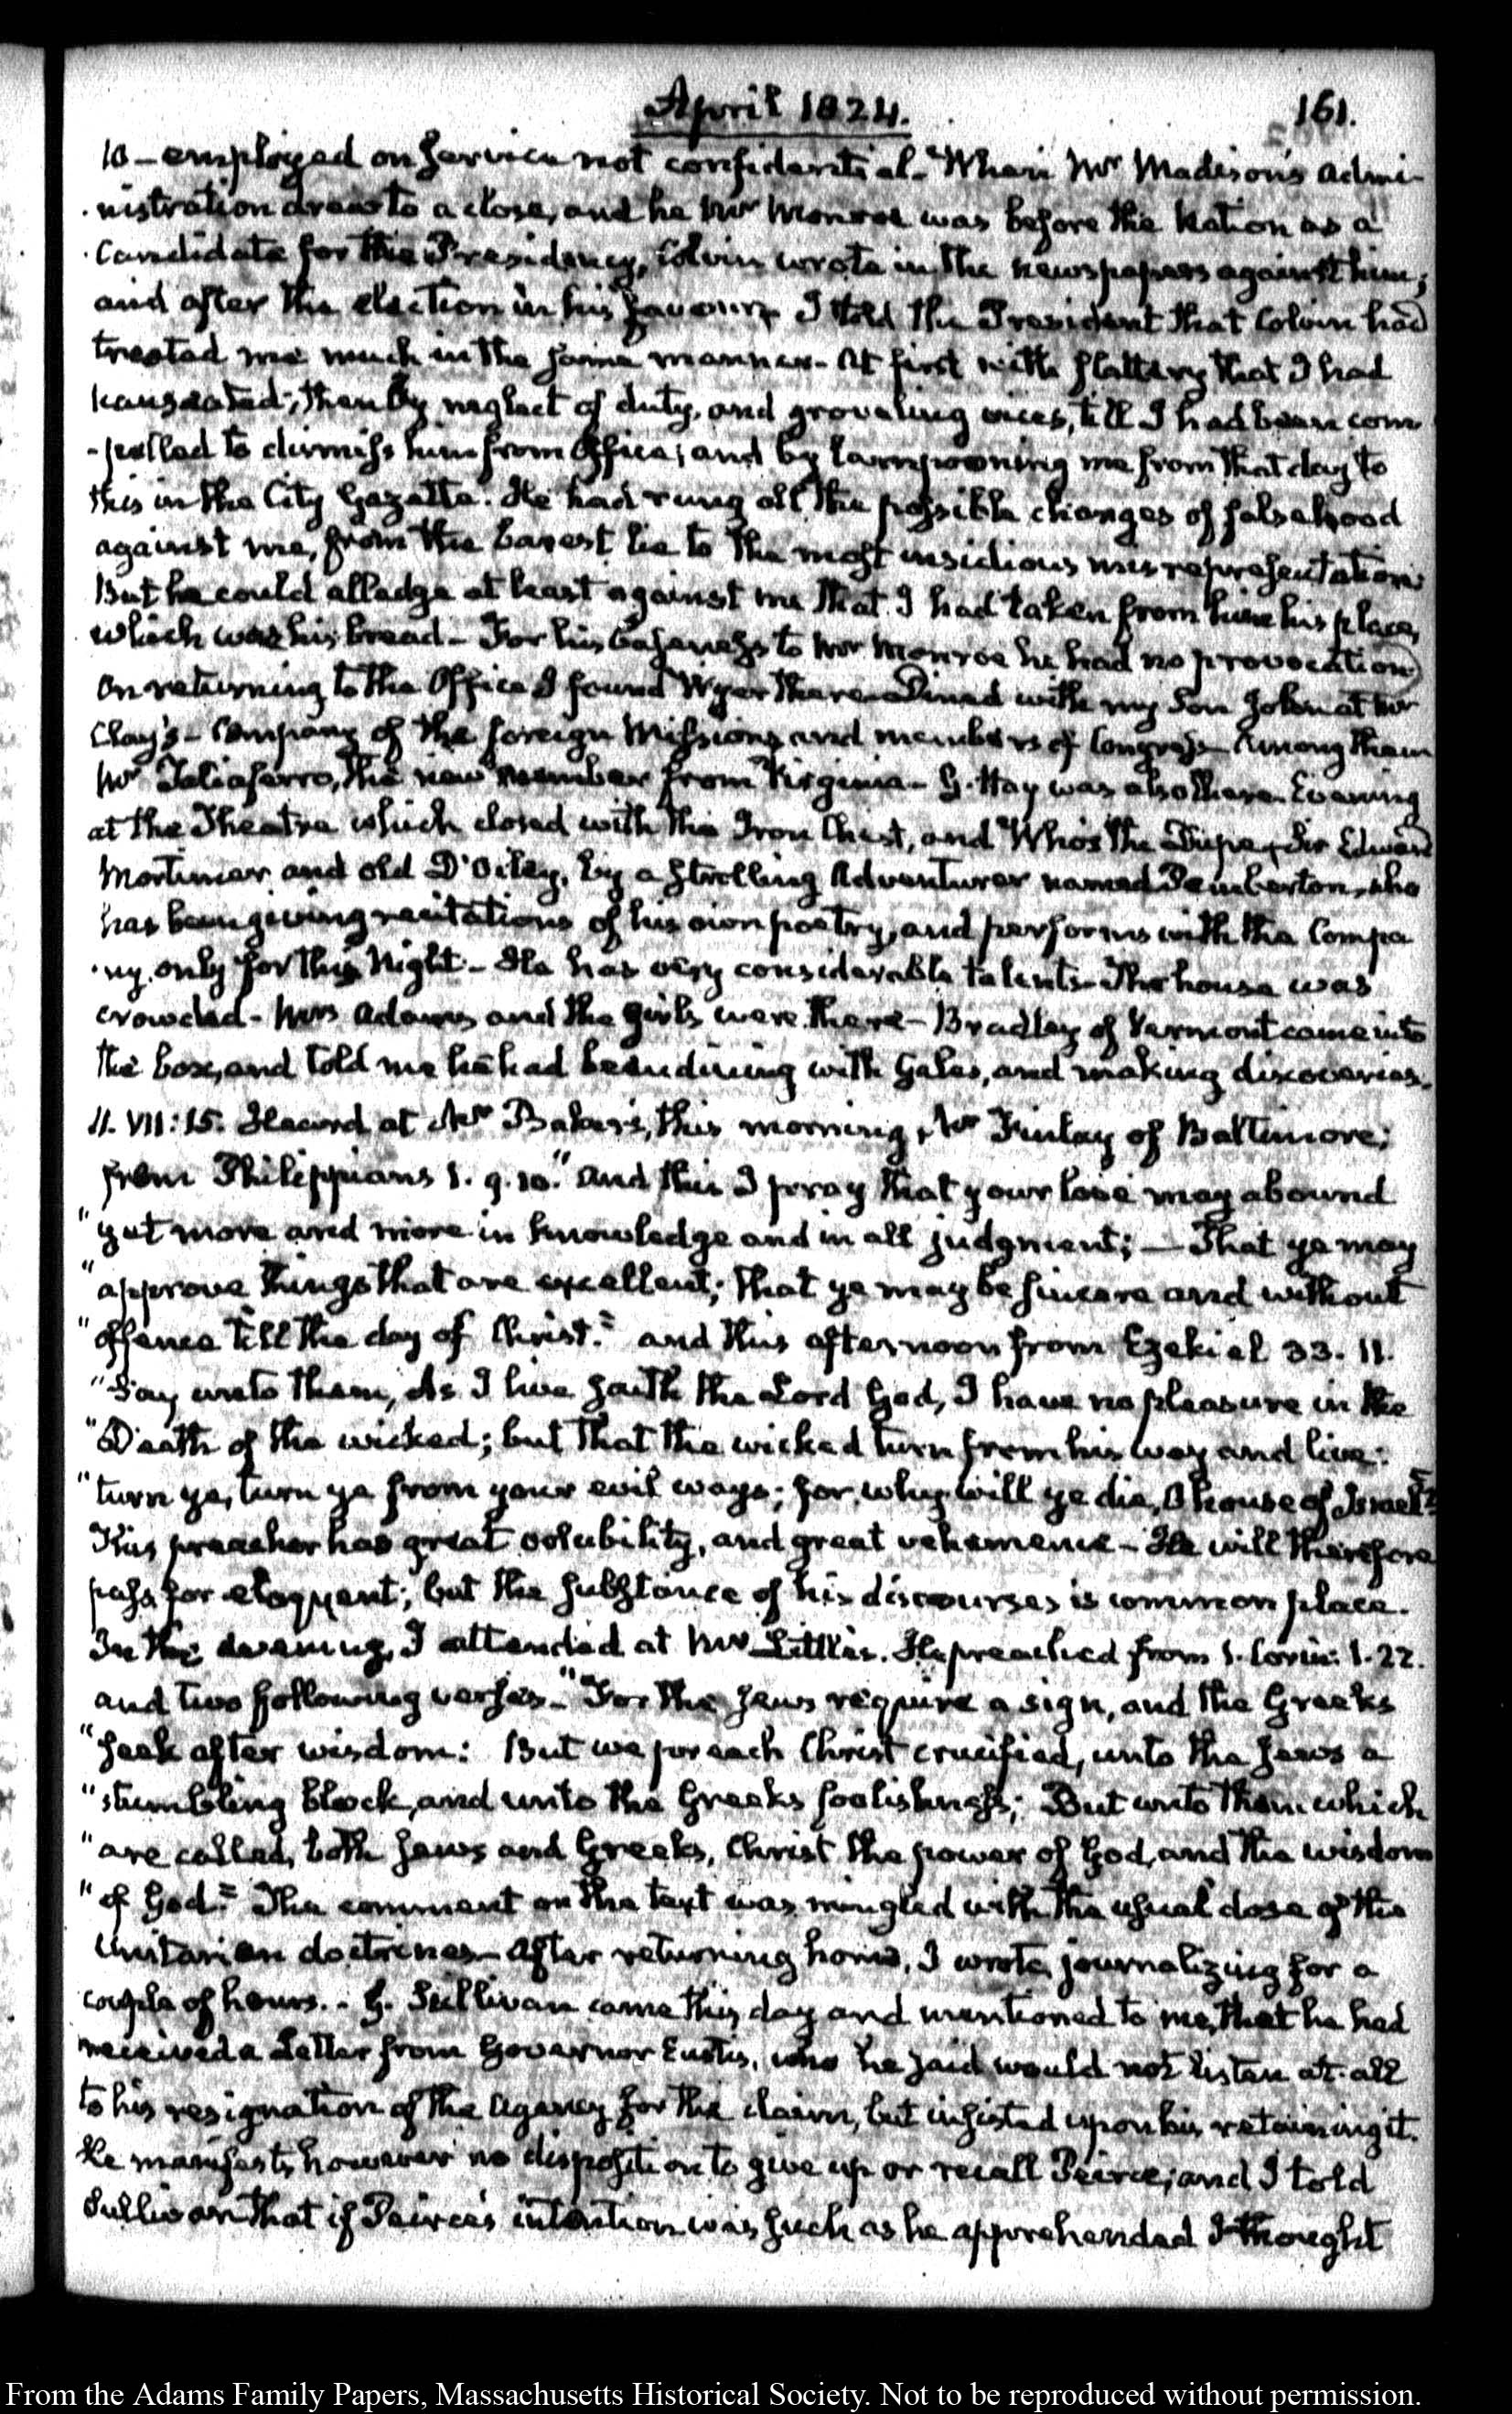 April 1824.
161.
10 — employed on service not confidential. When Mr Madison's admi-
-nistration drew to a close, and he Mr Monroe was before the Nation as a
Candidate for the Presidency, Colvin wrote in the newspapers against him;
and after the election in his favour. I told the President that Colvin had
treated me much in the same manner. At first with flattery that I had
nauseated; then by neglect of duty, and groveling vices, till I had been com
-pelled to dismiss him from Office; and by lampooning me from that day to
this in the City Gazette. He had rung all the possible changes of falsehood
against me, from the barest lie to the most insidious misrepresentation.
But he could alledge at least against me that I had taken from him his place,
which was his bread — For his baseness to Mr Monroe he had no provocation
On returning to the Office I found Wyer there. Dined with my Son John at Mr
Clay's — Company of the foreign Missions and members of Congress. Among them
Mr Taliaferro, the new member from Virginia — G. Hay was also there. Evening
at the Theatre which closed with the Iron Chest, and Who's the Dupe. Sir Edward
Mortimer and old D'oiley, by a strolling Adventurer named Pemberton, who
has been giving recitations of his own poetry, and performs with the Compa
-ny only for this Night — He has very considerable talents. The house was
crowded — Mrs Adams and the girls were there — Bradley of Vermont came into
the box, and told me he had been dining with Gales, and making discoveries.
11. VII: 15. Heard at Mr Baker's, this morning, Mr Finlay of Baltimore;
from Philippians 1. 9. 10. "And this I pray that your love may abound
"yet more and more in knowledge and in all judgment; — That ye may
"approve things that are excellent; that ye may be sincere and without
"offence till the day of Christ." and this afternoon from Ezekiel 33. 11.
"Say unto them, As I live saith the Lord God, I have no pleasure in the
"Death of the wicked; but that the wicked turn from his way and live:
"turn ye, turn ye from your evil ways; for, why will ye die, O house of Israel?"
This preacher has great volubility, and great vehemence — He will therefore
pass for eloquent; but the substance of his discourses is common place.
In the evening, I attended at Mr Little's. He preached from 1. Corin: 1. 22.
and two following verses — "For the Jews require a sign, and the Greeks
"seek after wisdom: But we preach Christ crucified, unto the Jews a
"stumbling block, and unto the Greeks foolishness; But unto them which
"are called, both Jews and Greeks, Christ the power of God, and the wisdom
"of God." The comment on the text was mingled with the usual dose of the
Unitarian doctrines — After returning home, I wrote journalizing for a
couple of hours. . G. Sullivan came this day and mentioned to me, that he had
received a Letter from Governor Eustis, who he said would not listen at all
to his resignation of the Agency for the claim, but insisted upon his retaining it.
He manifests however no disposition to give up or recall Peirce; and I told
Sullivan that if Peirce's intention was such as he apprehended I thought
From the Adams Family Papers, Massachusetts Historical Society. Not to be reproduced without permission.